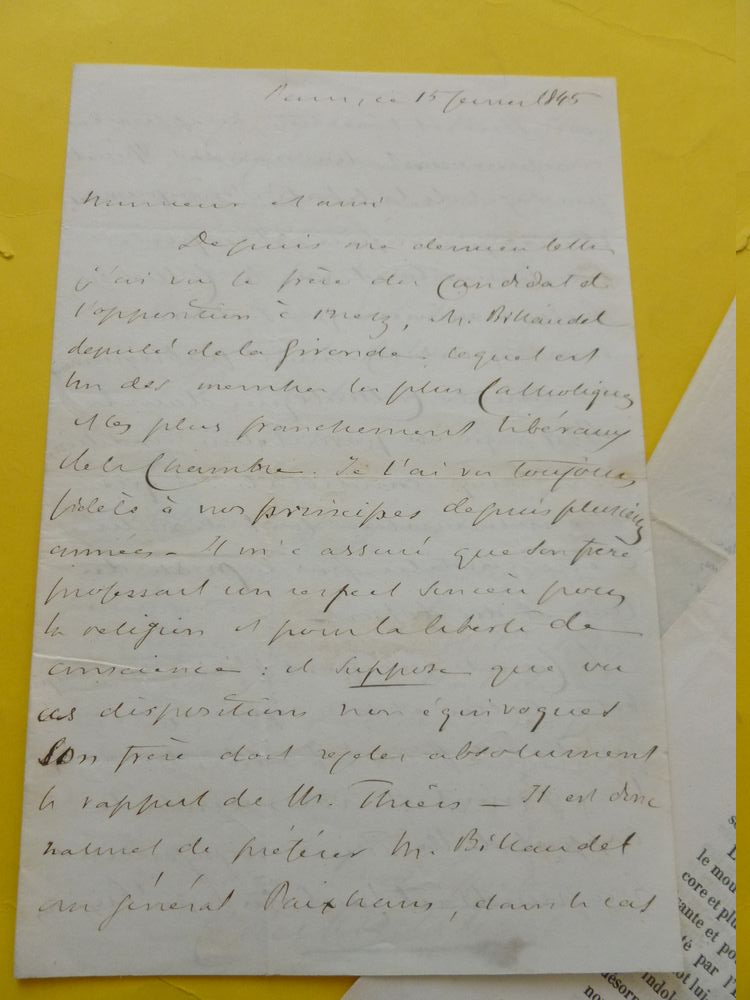 Paris, ce 15 février 1845
Monsieur et ami
Depuis ma dernière lettre
j'ai vu le frère du Candidat de
l'opposition à Metz, M. Billaudel
député de la Gironde : lequel est
un des membres les plus Catholiques
et les plus franchement libéraux
de la Chambre. Je l'ai vu toujours
fidèle à nos principes depuis plusieurs
années — Il m'a assuré que son frère
professait un respect sincère pour
la religion et pour la liberté de
conscience : il suppose que vu
ces dispositions non équivoques
son frère doit rejeter absolument
le rapport de M. Thiers — Il est donc
naturel de préférer M. Billaudel
au général Paixhans, dans le cas
le mou
core et plu
ante et po
té par l'I
ot lui
indol
désorr
no